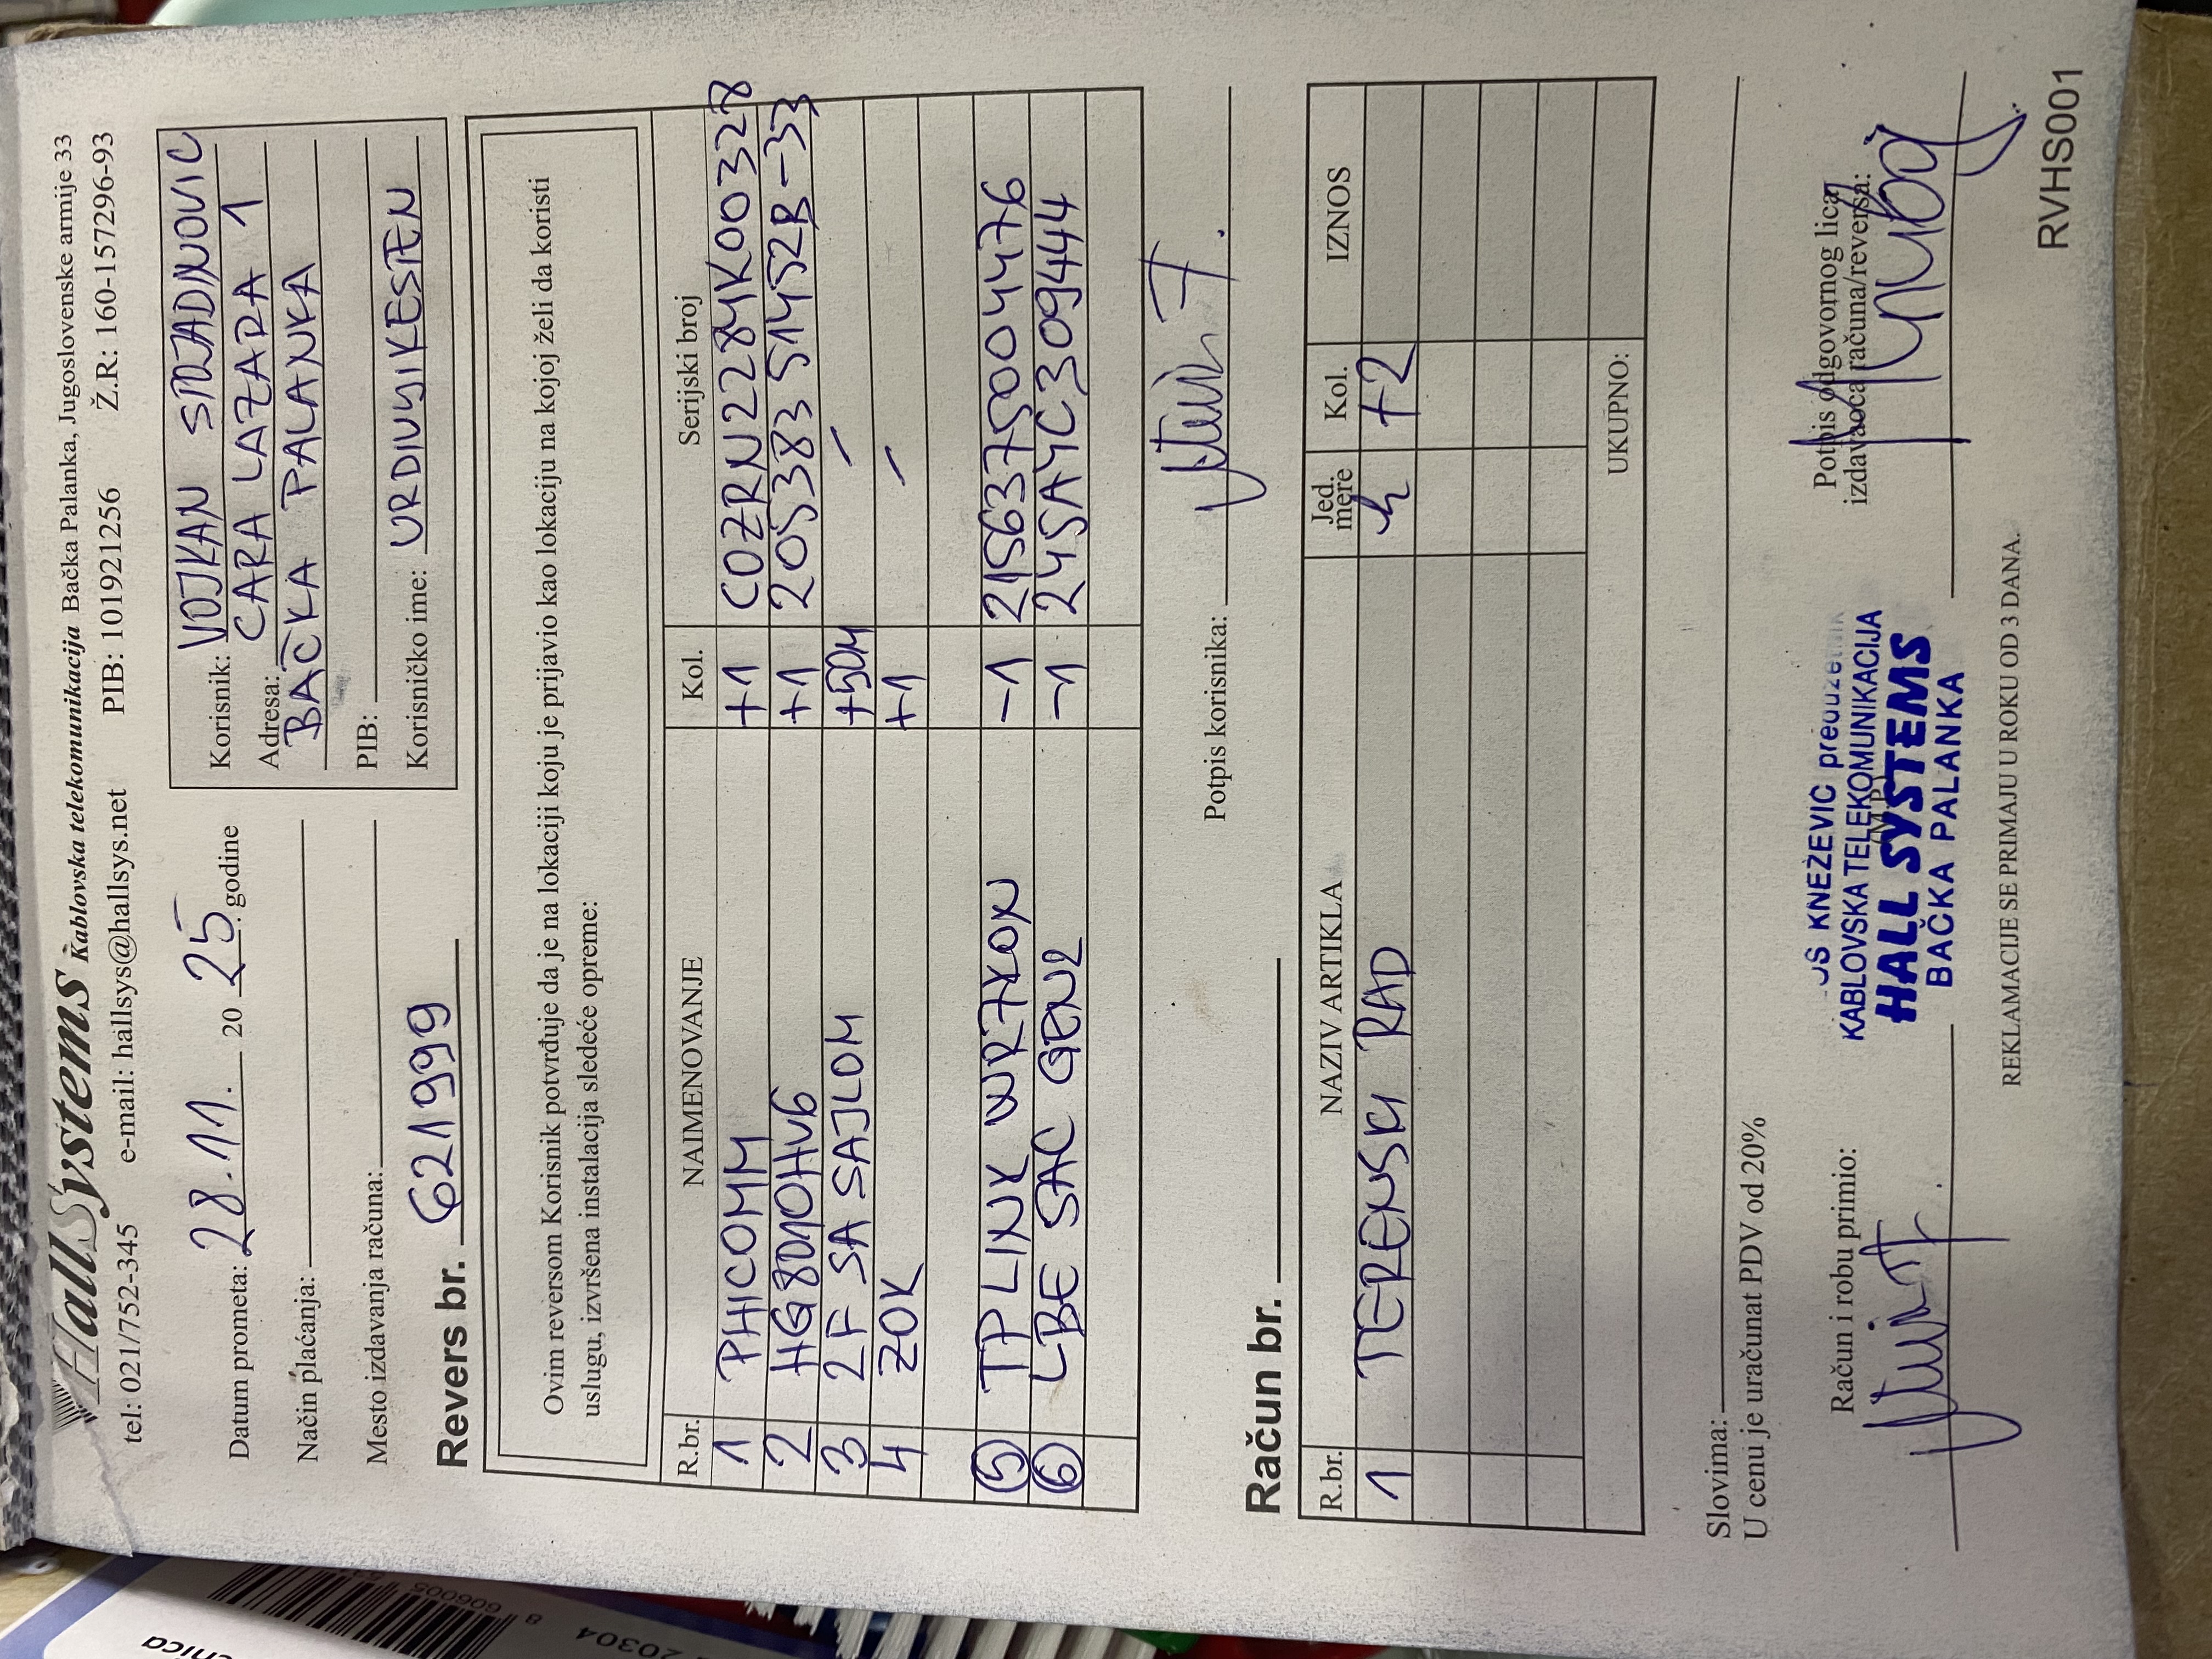 HallSystems Kablovska telekomunikacija Bačka Palanka, Jugoslovenske armije 33
tel: 021/752-345 e-mail: hallsys@hallsys.net PIB: 101921256 Ž.R: 160-157296-93
Datum prometa: 28.11. 20 25. godine
Način plaćanja:
Mesto izdavanja računa:
Korisnik: VOJKAN
Adresa: CARA LAZARA 1
BAČKA PALANKA
PIB:
Korisničko ime:
Revers br. 621999
Ovim reversom Korisnik potvrđuje da je na lokaciji koju je prijavio kao lokaciju na kojoj želi da koristi
uslugu, izvršena instalacija sledeće opreme:
R.br. NAIMENOVANJE Kol. Serijski broj
1 PHICOMM +1 COZRN2284K00327
2 HG8010HV6 +1
3 2F SA SAJLOM +50M /
4 ZOK +1 /
5 TP LINK -1 2156375004476
6 LBE 5AC GEN2 -1 245A4C309444
Potpis korisnika:
Račun br.
R.br. NAZIV ARTIKLA Jed. mere Kol. IZNOS
1 TERENSKI RAD h +2
UKUPNO:
Slovima:
U cenu je uračunat PDV od 20%
Račun i robu primio:
Potpis odgovornog lica
izdavaoca računa/reversa:
KNEŽEVIĆ
KABLOVSKA TELEKOMUNIKACIJA
HALL SYSTEMS
BAČKA PALANKA
REKLAMACIJE SE PRIMAJU U ROKU OD 3 DANA.
RVHS001
20304
606005